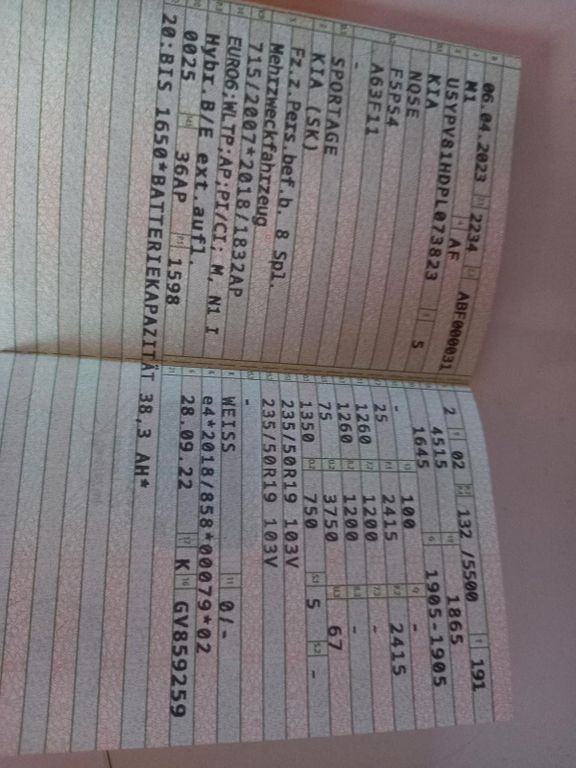 06.04.2023 2234 ABF000031
M1 AF
U5YPV81HDPL073823 5
KIA
NQ5E
F5P54
A63F11
-
SPORTAGE
KIA (SK)
Fz.z.Pers.bef.b. 8 Spl.
Mehrzweckfahrzeug
715/2007*2018/1832AP
EURO6;WLTP;AP;PI/CI; M, N1 I
Hybr.B/E ext.aufl.
0025 36AP 1598
20:BIS 1650*BATTERIEKAPAZITÄT 38,3 AH*
2 02 132 /5500 191
4515 1865
1645 1905-1905
- 100 -
25 2415 2415
1260 1200 -
1260 1200 -
75 3750 67
1350 750 5 -
235/50R19 103V
235/50R19 103V
-
WEISS 0/-
e4*2018/858*00079*02
28.09.22 K GV859259